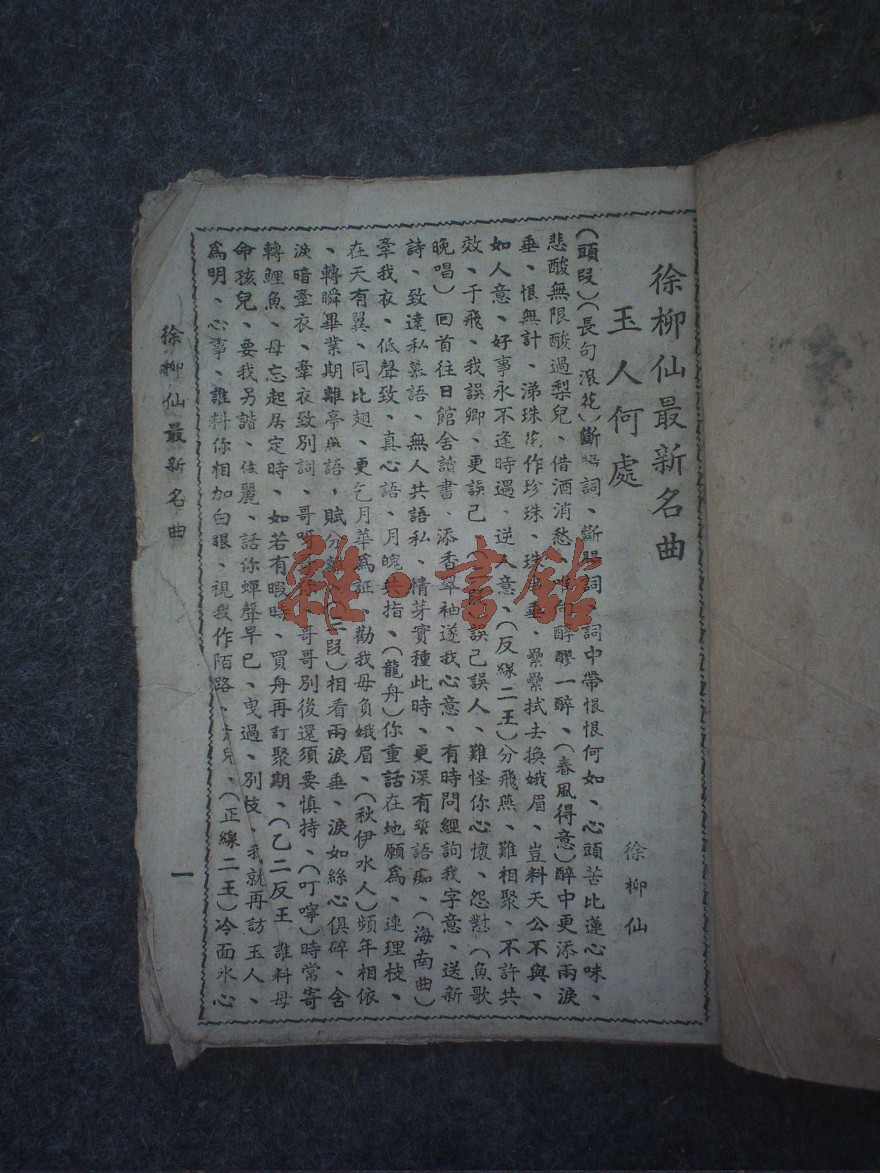 徐柳仙最新名曲
玉人何處
徐柳仙
(頭段)(長句滾花)斷腸詞、斷腸詞、詞中帶恨恨何如、心頭苦比蓮心味、
悲酸無限酸過梨兒、借酒消愁、醇醪一醉、(春風得意)醉中更添兩淚
垂、恨無計、涕珠兒作珍珠、珠垂、纍纍拭去換娥眉、豈料天公不與、
如人意、好事永不逢時遇、逆人意、(反線二王)分飛燕、難相聚、不許共
效、于飛、我誤卿、更誤己、誤己誤人、難怪你心懷、怨懟(魚歌
晚唱)回首往日館舍讀書、添香翠袖遂我心意、有時問經詢我字意、送新
詩、致達私慕語、無人共語私、情芽實種此時、更深有誓語痴、(海南曲)
牽我衣、低聲致、真心語、月魄共指、(龍舟)你重話在地願為、連理枝、
在天有翼、同比翅、更乞月華為証、勸我毋負娥眉、(秋伊水人)頻年相依
、轉瞬畢業期離亭燕語、賦分離(二段)相看兩淚垂、淚如絲心俱碎、含
淚暗牽衣、牽衣致別詞、哥呀哥哥別後還須要慎持、(叮嚀)時常寄
轉鯉魚、毋忘起居定時、如若有暇時、買舟再訂聚期、(乙二反王 誰料母
命孩兒、要我另諧、伉麗、話你蟬聲早已、曳過、別枝、我就再訪玉人、
為明、心事、誰料你相加白眼、視我作陌路、兒、(正線二王)冷面冰心
徐柳仙最新名曲
一
雜·書館